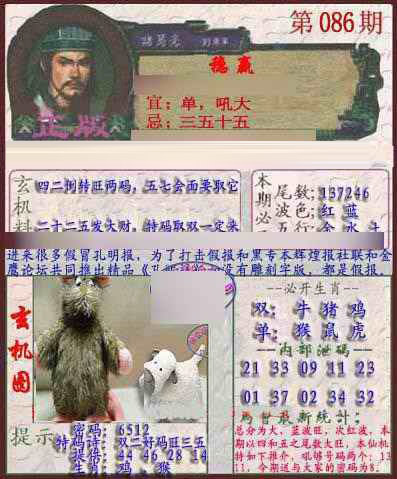 第086期
诸葛亮
稳赢
宜：单，吼大
忌：三五十五
正版
玄机料
四二捌转旺两码，五七会面要取它
二十二五发大财，特码取双一定来
本期必
尾数:137246
波色:红 蓝
五行:金 水 土
进来很多假冒孔明报，为了打击假报和黑专本辉煌报社联和金
鹰论坛共同推出精品《 没有雕刻字版，都是假报。
玄机图
--必开生肖--
双：牛 猪 鸡
单：猴 鼠 虎
--内部泄码--
21 33 09 11 23
01 37 02 34 32
最新统计：
总分为大，蓝波旺，次红波，本
期以四和五之尾数大旺，本仙机
特如下推介，吼够号码两个：13
11，今期送与大家的密码为8.
提示
密码：6512
特码诗：双二好码旺三五
提得：44 46 28 14
生肖：鸡，猴